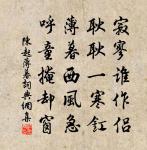 寂寥誰作侶
耿耿一寒釭
薄暮西風急
呼童掩却窗
陳起薄暮詞典網集